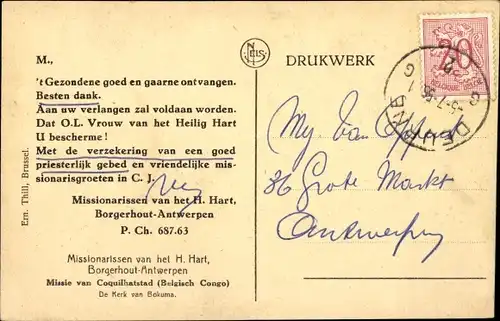 M.,
't Gezondene goed en gaarne ontvangen.
Besten dank.
Aan uw verlangen zal voldaan worden.
Dat O.L. Vrouw van het Heilig Hart
U bescherme !
Met de verzekering van een goed
priesterlijk gebed en vriendelijke mis-
sionarisgroeten in C. J.
Missionarissen van het H. Hart,
Borgerhout-Antwerpen
P. Ch. 687.63
Missionarissen van het H. Hart,
Borgerhout-Antwerpen
Missie van Coquilhatstad (Belgisch Congo)
De Kerk van Bokuma.
Ern. Thill, Brussel.
NELS
DRUKWERK
20
BELGIQUE BELGIE
DEURNE
Van
86 Grote Markt
Antwerpen